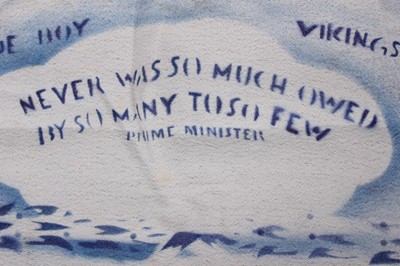 BOY VIKINGS
NEVER WAS SO MUCH OWED
BY SO MANY TO SO FEW
PRIME MINISTER